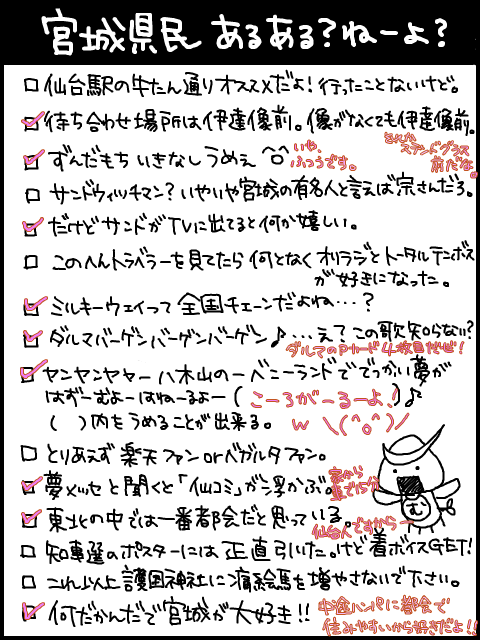 宮城県民 あるある？ねーよ？
仙台駅の牛たん通りオススメだよ！行ったことないけど。
待ち合わせ場所は伊達像前。像がなくても伊達像前。
ステンドグラス
前だな。
ずんだもち いきなし うめぇ
いや、
ふつうです。
サンドウィッチマン？いやいや宮城の有名人と言えば宗さんだろ。
だけどサンドがTVに出てると何か嬉しい。
このへんトラベラーを見てたら 何となく オリラジと トータルテンボス
が 好きになった。
ミルキーウェイって 全国チェーンだよね…？
ダルマバーゲンバーゲンバーゲン♪…え？この歌知らない？
ダルマのPカード4枚目だぜ！
ヤンヤンヤャー 八木山のーベニーランドで でっかい夢が
はずーむよーはねーるよー（こーろがーるーよ！）♪
（　）内をうめることが出来る。
w ＼(^o^)／
とりあえず 楽天ファン orベガルタファン。
夢メッセ と聞くと「仙コミ」が浮かぶ。
家から
車で15分
東北の中では一番都会だと思っている。
仙台人ですからー
む
知事選のポスターには 正直引いた。けど着ボイスGET！
これ以上 護国神社に痛絵馬を増やさないで下さい。
何だかんだで宮城が大好き!!
中途ハンパに都会で
住みやすいから好きだよ!!